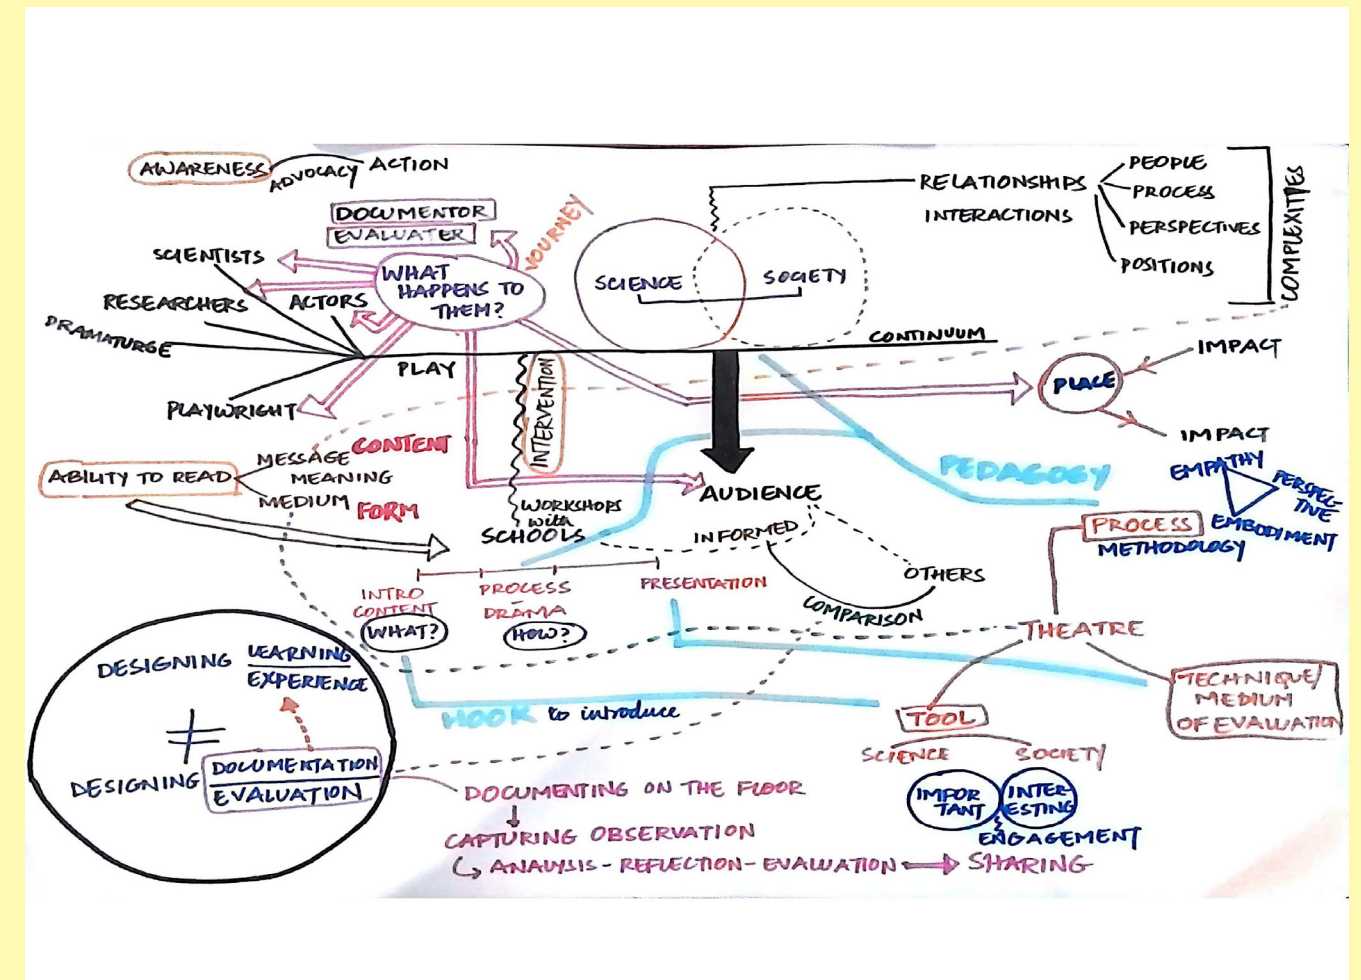 AWARENESS
ADVOCACY
ACTION
DOCUMENTOR
EVALUATER
JOURNEY
SCIENTISTS
RESEARCHERS
ACTORS
DRAMATURGE
PLAYWRIGHT
WHAT
HAPPENS TO
THEM?
PLAY
SCIENCE
SOCIETY
CONTINUUM
RELATIONSHIPS
INTERACTIONS
PEOPLE
PROCESS
PERSPECTIVES
POSITIONS
COMPLEXITIES
IMPACT
PLACE
IMPACT
INTERVENTION
ABILITY TO READ
MESSAGE
CONTENT
MEANING
MEDIUM
FORM
WORKSHOPS
with
SCHOOLS
AUDIENCE
INFORMED
OTHERS
COMPARISON
PEDAGOGY
EMPATHY
PERSPEC-
TIVE
EMBODIMENT
PROCESS
METHODOLOGY
INTRO
CONTENT
WHAT?
PROCESS
DRAMA
HOW?
PRESENTATION
THEATRE
TECHNIQUE/
MEDIUM
OF EVALUATION
TOOL
SCIENCE
SOCIETY
IMPOR
TANT
INTER-
ESTING
ENGAGEMENT
HOOK to introduce
DESIGNING LEARNING
EXPERIENCE
≠
DESIGNING DOCUMENTATION
EVALUATION
DOCUMENTING ON THE FLOOR
CAPTURING OBSERVATION
ANALYSIS - REFLECTION - EVALUATION
SHARING